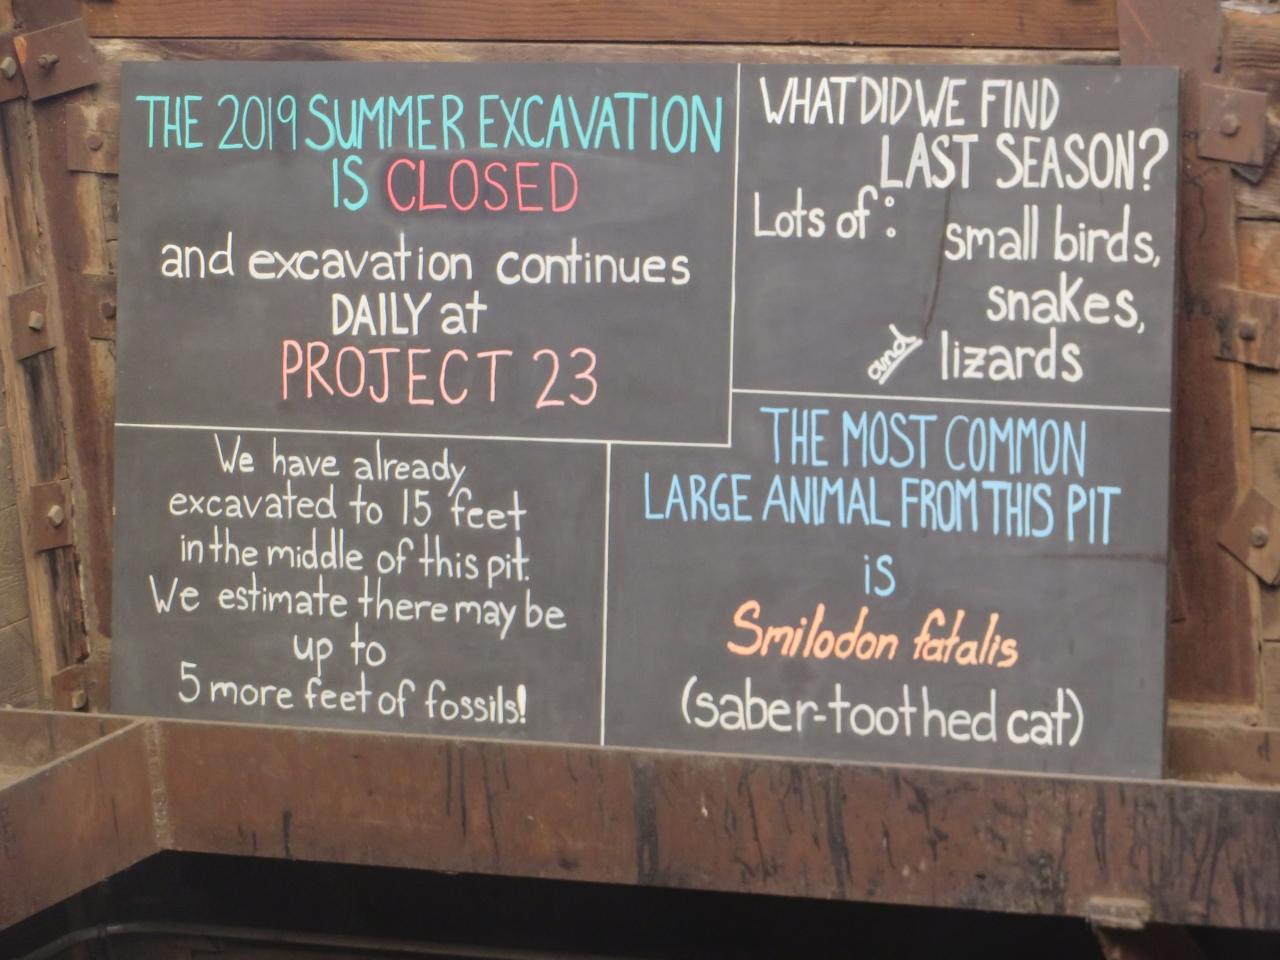 THE 2019 SUMMER EXCAVATION
IS CLOSED
and excavation continues
DAILY at
PROJECT 23
WHAT DID WE FIND
LAST SEASON?
Lots of: small birds,
snakes,
and lizards
We have already
excavated to 15 feet
in the middle of this pit.
We estimate there may be
up to
5 more feet of fossils!
THE MOST COMMON
LARGE ANIMAL FROM THIS PIT
is
Smilodon fatalis
(saber-toothed cat)